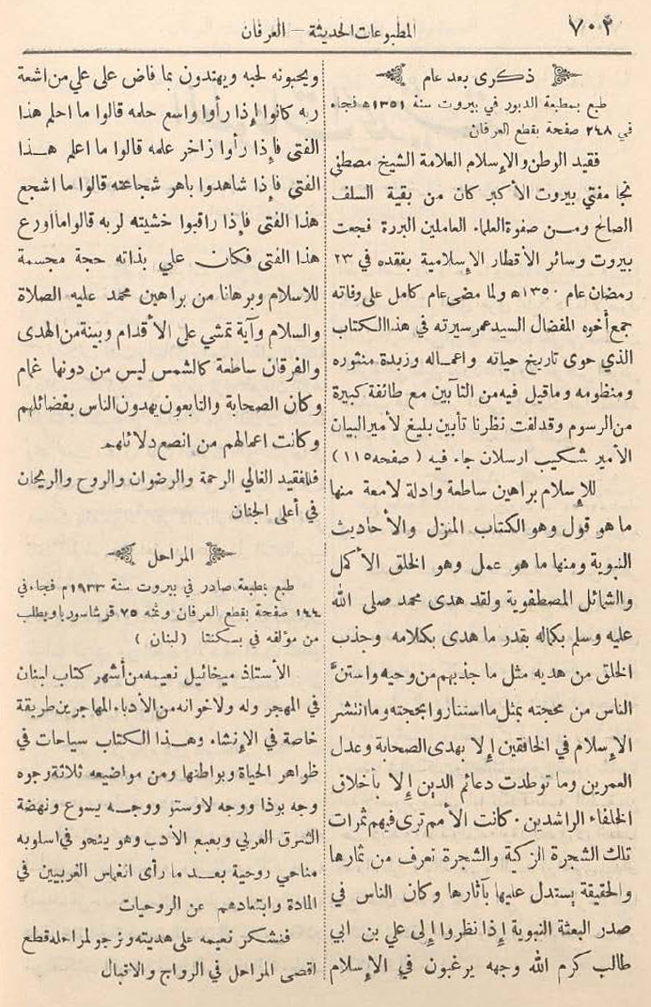 ٧٠٢
المطبوعات الحديثة — العرفان
ذكرى بعد عام
طبع بمطبعة الدبور في بيروت سنة ١٣٥١ه فجاء
في ٢٤٨ صفحة بقطع العرفان
فقيد الوطن والإسلام العلامة الشيخ مصطفى
نجا مفتي بيروت الأكبر كان من بقية السلف
الصالح ومن صفوة العلماء العاملين البررة فجعت
بيروت وسائر الأقطار الإسلامية بفقده في ٢٣
رمضان عام ١٣٥٠ه ولما مضى عام كامل على وفاته
جمع أخوه المفضال السيد عمر سيرته في هذا الكتاب
الذي حوى تاريخ حياته واعماله وزبدة منثوره
ومنظومه وماقيل فيه من التآبين مع طائفة كبيرة
من الرسوم وقد لفت نظرنا تأبين بليغ لأمير البيان
الأمير شكيب ارسلان جاء فيه ( صفحه ١١٥ )
للإسلام براهين ساطعة وادلة لامعة منها
ما هو قول وهو الكتاب المنزل والأحاديث
النبوية ومنها ما هو عمل وهو الخلق الأكمل
والشمائل المصطفوية ولقد هدى محمد صلى الله
عليه وسلم بكماله بقدر ما هدى بكلامه وجذب
الخلق من هديه مثل ما جذبهم من وحيه واستنَّ
الناس من محجته بمثل ما استناروا بحجته وما انتشر
الإسلام في الخافقين إلا بهدى الصحابة وعدل
العمرين وما توطدت دعائم الدين إلا بأخلاق
الخلفاء الراشدين . كانت الأمم ترى فيهم ثمرات
تلك الشجرة الزكية والشجرة تعرف من ثمارها
والحقيقة يستدل عليها بآثارها وكان الناس في
صدر البعثة النبوية إذا نظروا إلى علي بن ابي
طالب كرم الله وجهه يرغبون في الإسلام
ويحبونه لحبه ويهتدون بما فاض على علي من اشعة
ربه كانوا إذا رأوا واسع حلمه قالوا ما احلم هذا
الفتى فإذا رأوا زاخر علمه قالوا ما اعلم هذا
الفتى فإذا شاهدوا باهر شجاعته قالوا ما اشجع
هذا الفتى فإذا راقبوا خشيته لربه قالوا ما اورع
هذا الفتى فكان علي بذاته حجة مجسمة
للاسلام وبرهانا من براهين محمد عليه الصلاة
والسلام وآية تمشي على الأقدام وبينة من الهدى
والفرقان ساطعة كالشمس ليس من دونها غمام
وكان الصحابة والتابعون يهدون الناس بفضائلهم
وكانت اعمالهم من انصع دلائلهم
فللفقيد الغالي الرحمة والرضوان والروح والريحان
في أعلى الجنان
المراحل
طبع بمطبعة صادر في بيروت سنة ١٩٣٣م فجاء في
١٤٤ صفحة بقطع العرفان وثمنه ٧٥ قرشا سوريا ويطلب
من مؤلفه في بسكنتا ( لبنان )
الأستاذ ميخائيل نعيمه من أشهر كتاب لبنان
في المهجر وله ولاخوانه من الأدباء المهاجرين طريقة
خاصة في الإنشاء وهذا الكتاب سياحات في
ظواهر الحياة وبواطنها ومن مواضيعه ثلاثة وجوه
وجه بوذا ووجه لاوستو ووجه يسوع ونهضة
الشرق العربي وبعبع الأدب وهو ينحو في اسلوبه
مناحي روحية بعد ما رأى انغماس الغربيين في
المادة وابتعادهم عن الروحيات
فنشكر نعيمه على هديته ونرجو لمراحله قطع
اقصى المراحل في الرواج والاقبال